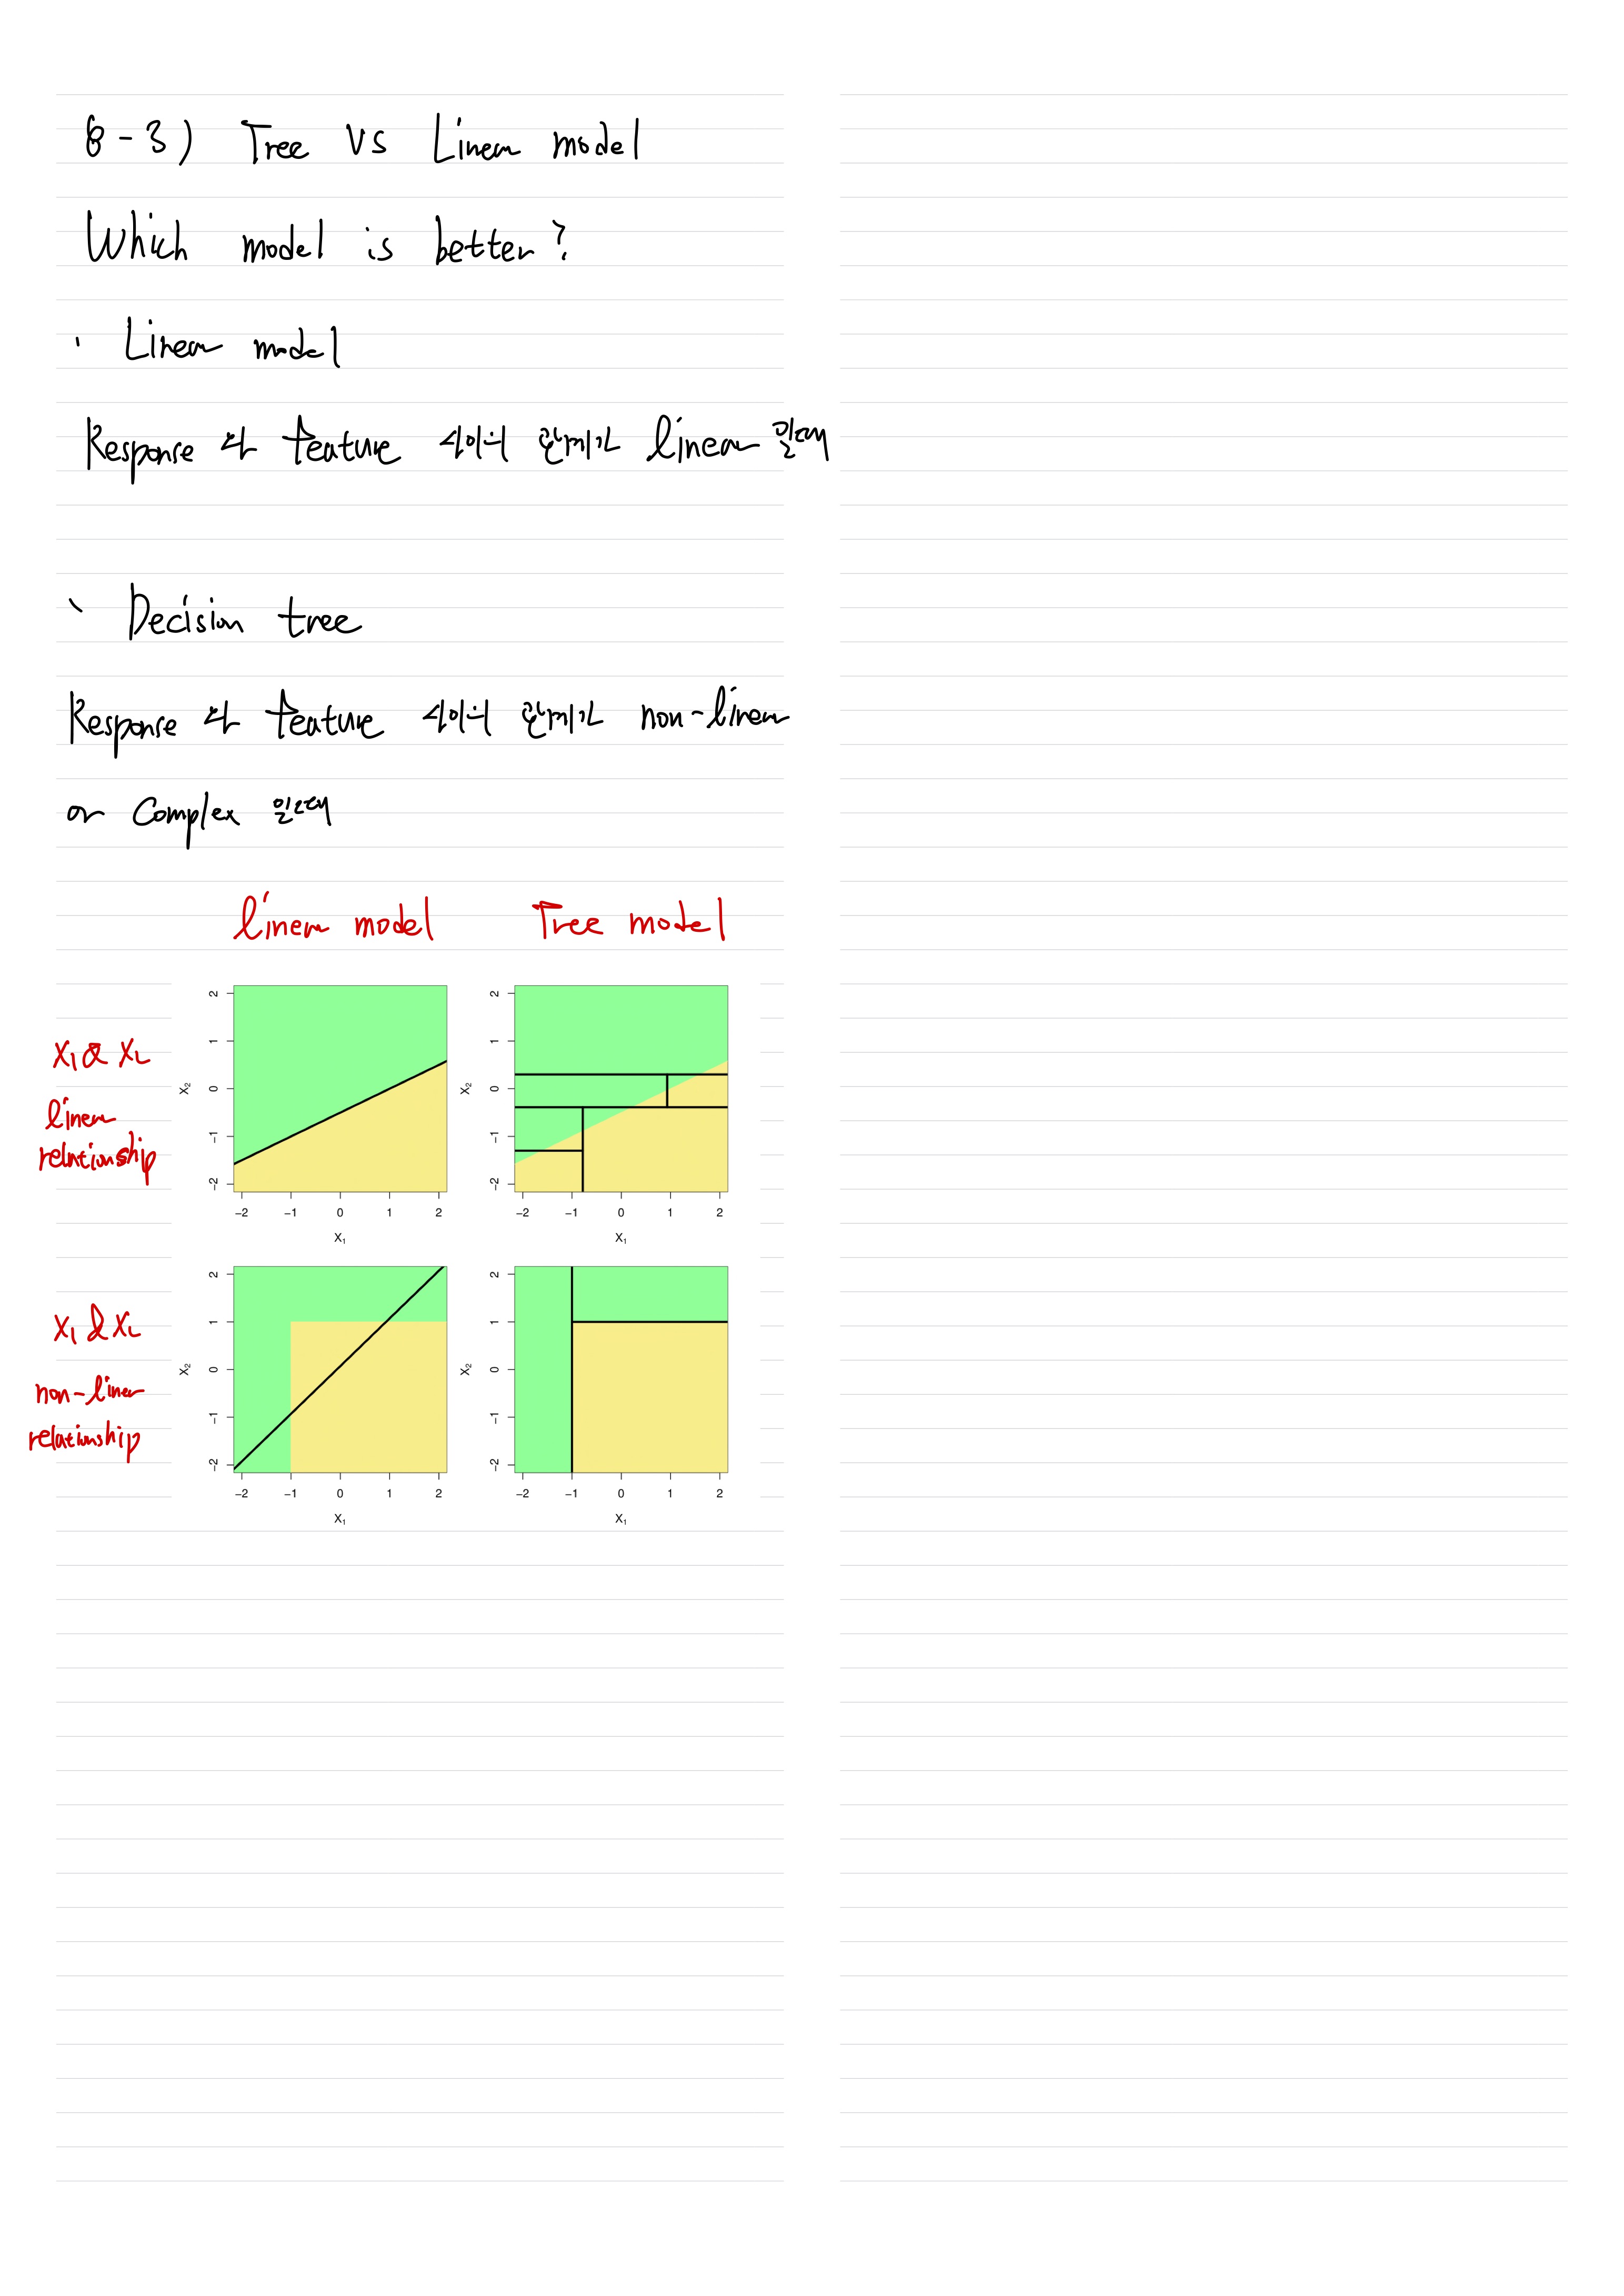 8-3) Tree vs Linear model
Which model is better?
· Linear model
Response 와 feature 사이의 관계가 linear 일때
· Decision tree
Response 와 feature 사이의 관계가 non-linear
or Complex 일때
linear model Tree model
X1 & X2
linear
relationship
2 1 0 -1 -2
X2
-2 -1 0 1 2
X1
2 1 0 -1 -2
X2
-2 -1 0 1 2
X1
X1 & X2
non-linear
relationship
2 1 0 -1 -2
X2
-2 -1 0 1 2
X1
2 1 0 -1 -2
X2
-2 -1 0 1 2
X1